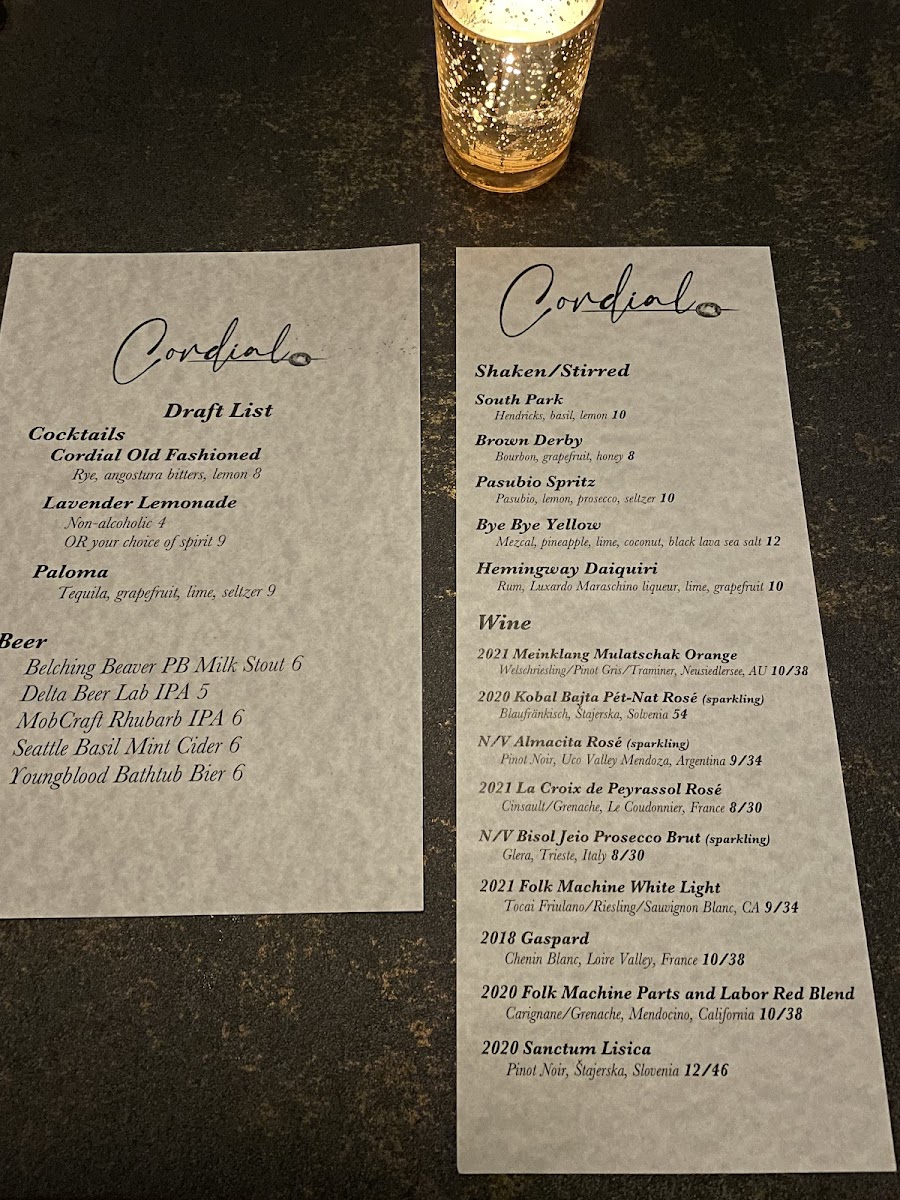 Cordial
Draft List
Cocktails
Cordial Old Fashioned
Rye, angostura bitters, lemon 8
Lavender Lemonade
Non-alcoholic 4
OR your choice of spirit 9
Paloma
Tequila, grapefruit, lime, seltzer 9
Beer
Belching Beaver PB Milk Stout 6
Delta Beer Lab IPA 5
MobCraft Rhubarb IPA 6
Seattle Basil Mint Cider 6
Youngblood Bathtub Bier 6
Cordial
Shaken/Stirred
South Park
Hendricks, basil, lemon 10
Brown Derby
Bourbon, grapefruit, honey 8
Pasubio Spritz
Pasubio, lemon, prosecco, seltzer 10
Bye Bye Yellow
Mezcal, pineapple, lime, coconut, black lava sea salt 12
Hemingway Daiquiri
Rum, Luxardo Maraschino liqueur, lime, grapefruit 10
Wine
2021 Meinklang Mulatschak Orange
Welschriesling/Pinot Gris/Traminer, Neusiedlersee, AU 10/38
2020 Kobal Bajta Pét-Nat Rosé (sparkling)
Blaufränkisch, Štajerska, Solvenia 54
N/V Almacita Rosé (sparkling)
Pinot Noir, Uco Valley Mendoza, Argentina 9/34
2021 La Croix de Peyrassol Rosé
Cinsault/Grenache, Le Coudonnier, France 8/30
N/V Bisol Jeio Prosecco Brut (sparkling)
Glera, Trieste, Italy 8/30
2021 Folk Machine White Light
Tocai Friulano/Riesling/Sauvignon Blanc, CA 9/34
2018 Gaspard
Chenin Blanc, Loire Valley, France 10/38
2020 Folk Machine Parts and Labor Red Blend
Carignane/Grenache, Mendocino, California 10/38
2020 Sanctum Lisica
Pinot Noir, Štajerska, Slovenia 12/46